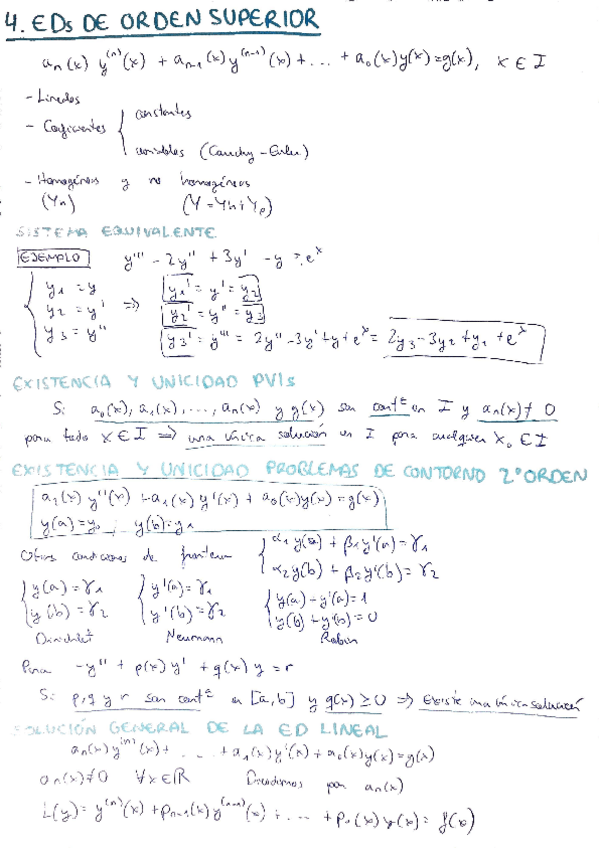 4. EDs DE ORDEN SUPERIOR
aₙ(x) y⁽ⁿ⁾(x) + aₙ₋₁(x) y⁽ⁿ⁻¹⁾(x) + ... + a₀(x)y(x) = g(x), x ∈ I
- Lineales
- Coeficientes { constantes
variables (Cauchy-Euler)
- Homogéneas y no homogéneas
(Yh) (Y = Yh + Yp)
SISTEMA EQUIVALENTE
EJEMPLO y''' - 2y'' + 3y' - y = eˣ
{ y₁ = y ⇒ y₁' = y' = y₂
y₂ = y' y₂' = y'' = y₃
y₃ = y'' y₃' = y''' = 2y'' - 3y' + y + eˣ = 2y₃ - 3y₂ + y₁ + eˣ
EXISTENCIA Y UNICIDAD PVIs
Si a₀(x), a₁(x), ..., aₙ(x) y g(x) son contᵉ en I y aₙ(x) ≠ 0
para todo x ∈ I ⇒ una única solución en I para cualquier x₀ ∈ I
EXISTENCIA Y UNICIDAD PROBLEMAS DE CONTORNO 2º ORDEN
a₂(x) y''(x) + a₁(x) y'(x) + a₀(x)y(x) = g(x)
y(a) = y₀ ; y(b) = y₁
Otras condiciones de frontera { α₁y(a) + β₁y'(a) = γ₁
α₂y(b) + β₂y'(b) = γ₂
{ y(a) = γ₁ { y'(a) = γ₁ { y(a) - y'(a) = 1
y(b) = γ₂ y'(b) = γ₂ y(b) + y'(b) = 0
Dirichlet Neumann Robin
Para -y'' + p(x) y' + q(x) y = r
Si p, q y r son contᵉ en [a, b] y q(x) ≥ 0 ⇒ Existe una única solución
SOLUCIÓN GENERAL DE LA ED LINEAL
aₙ(x) y⁽ⁿ⁾(x) + ... + a₁(x) y'(x) + a₀(x) y(x) = g(x)
aₙ(x) ≠ 0 ∀x ∈ ℝ Dividimos por aₙ(x)
L(y) = y⁽ⁿ⁾(x) + pₙ₋₁(x) y⁽ⁿ⁻¹⁾(x) + ... + p₀(x) y(x) = f(x)